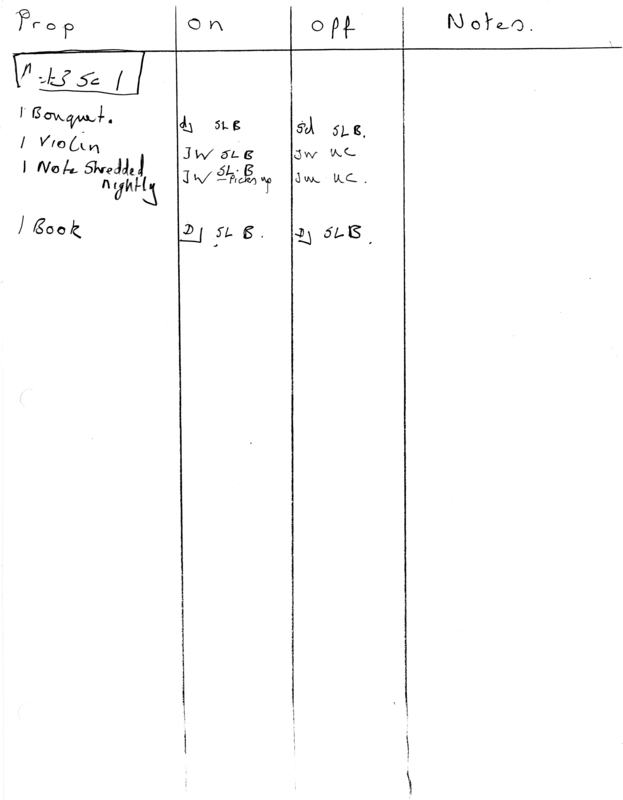 Prop on off Notes.
Act 3 Sc 1
1 Bouquet. dj SLB sd SLB.
1 Violin JW SLB JW UC
1 Note Shredded JW SL.B UC.
nightly Picks up
1 Book DJ SLB. DJ SLB.